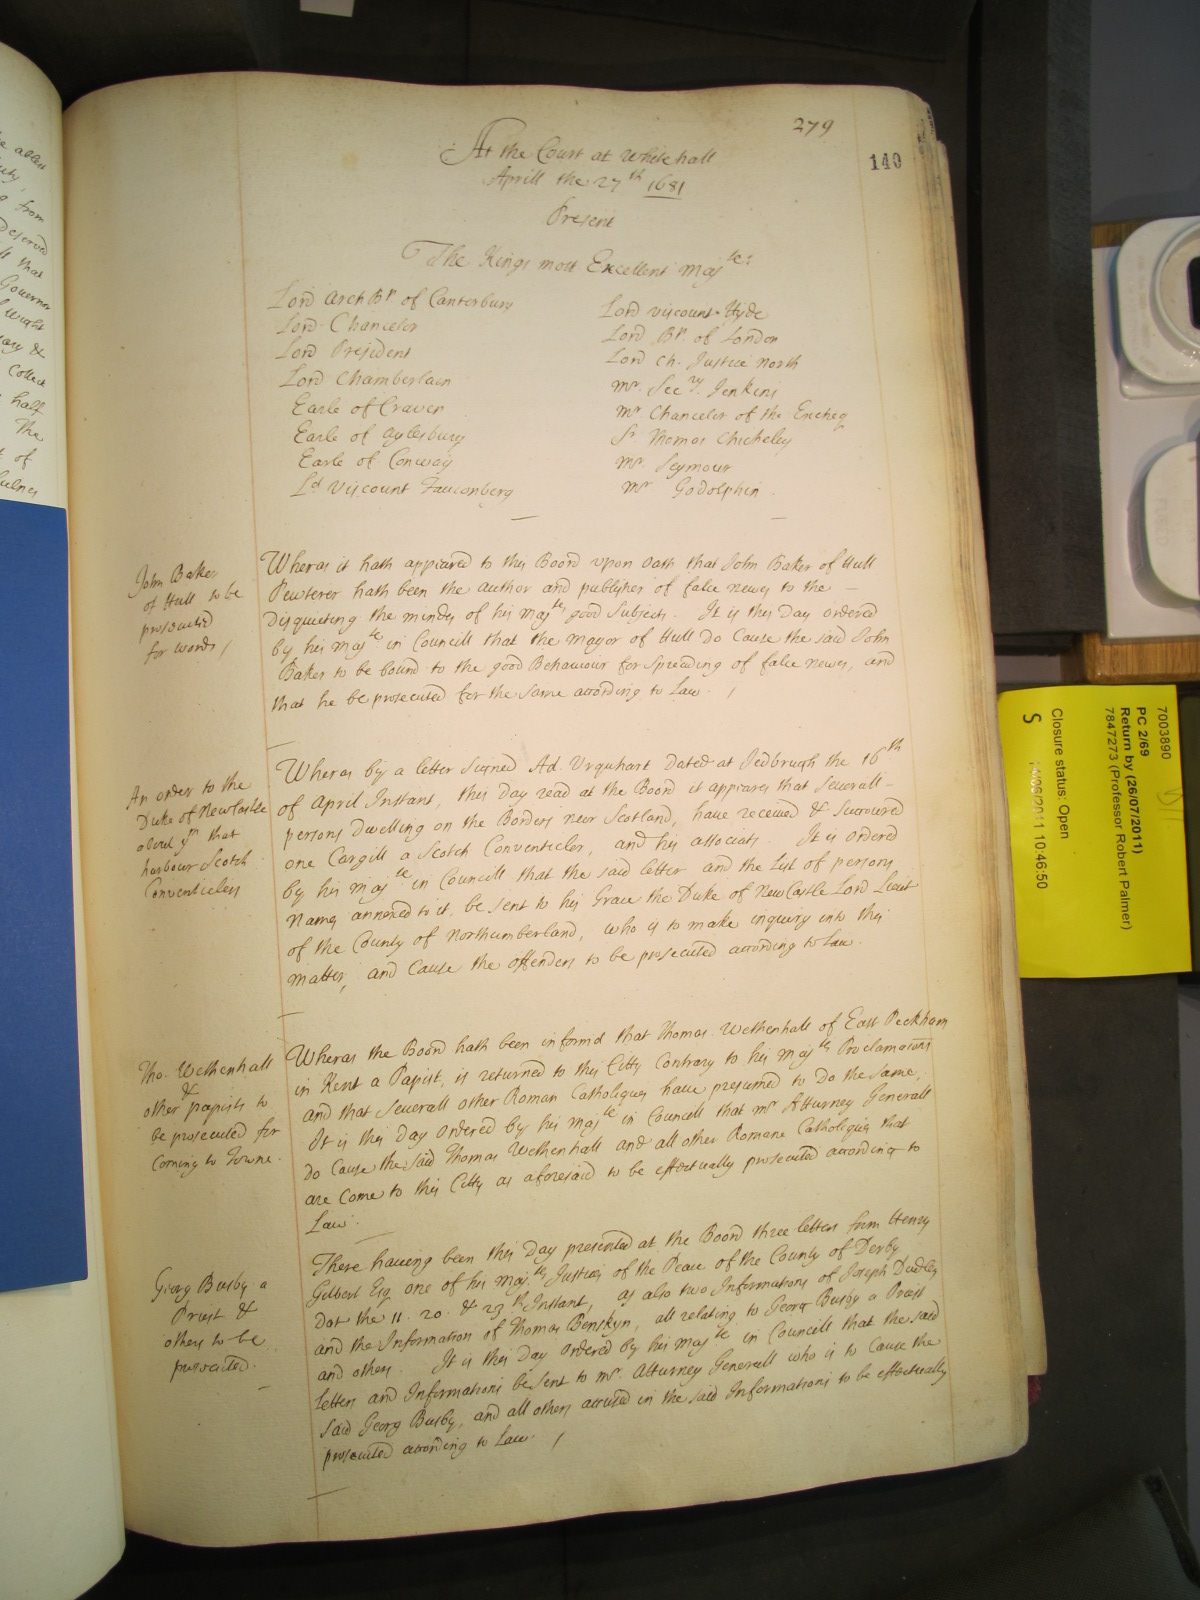 279
140
At the Court at Whitehall
Aprill the 27th 1681
Present
The Kings most Excellent Majte:
Lord Arch Bp. of Canterbury
Lord Chancelor
Lord President
Lord Chamberlain
Earle of Craven
Earle of Aylesbury
Earle of Conway
Ld Viscount Fauconberg
Lord Viscount Hyde
Lord Bp. of London
Lord Ch. Justice North
Mr. Secy. Jenkins
Mr Chancelor of the Excheq
Sr Thomas Chicheley
Mr. Seymour
Mr Godolphin
John Baker
of Hull to be
prosecuted
for words /
Wheras it hath appeared to this Board upon Oath that John Baker of Hull
Pewterer hath been the author and publisher of false newes to the
disquieting the mindes of his Majtes good Subjects. It is this Day ordered
by his Majte in Councill that the Mayor of Hull Do Cause the said John
Baker to be bound to the good Behaviour for Spreading of false newes, and
that he be prosecuted for the same according to Law. /
An order to the
Duke of NewCastle
about ym that
harbour Scotch
Conventiclers
Wheras by a letter Signed Ad. Urquhart Dated at Jedbrugh the 16th
of April Instant, this Day read at the Board it appeares that Severall
persons Dwelling on the Borders neer Scotland, have received & succoured
one Cargill a Scotch Conventicler, and his associats. It is ordered
by his Majte in Councill that the said letter and the List of persons
Names annexed to it, be sent to his Grace the Duke of NewCastle Lord Lieut
of the County of Northumberland, who is to make inquiry into this
matter, and Cause the offenders to be prosecuted according to Law.
Tho. Wethenhall
&
other papists to
be prosecuted for
Coming to Towne.
Wheras the Board hath been informed that Thomas Wethenhall of East Peckham
in Kent a Papist, is returned to this Citty Contrary to his Majtes Proclamations
and that Severall other Roman Catholiques have presumed to Do the same,
It is this Day ordered by his Majte in Councill that Mr Atturney Generall
do Cause the said Thomas Wethenhall and all other Romane Catholiques that
are Come to this Citty as aforesaid to be effectually prosecuted according to
Law.
Georg Busby a
Priest &
others to be
prosecuted.
There haveing been this Day presented at the Board three letters from Henry
Gilbert Esq. one of his Majtes Justices of the Peace of the County of Derby
Dat the 11. 20. & 23th Instant, as also two Informations of Joseph Dudley
and the Information of Thomas Benskyn, all relating to Georg Busby a Priest
and others. It is this Day Ordered by his Majte in Councill that the said
letters and Informations be sent to Mr. Atturney Generall who is to Cause the
said Georg Busby, and all others accused in the said Informations to be effectually
prosecuted according to Law. /
7003890
PC 2/69
Return by (26/07/2011)
7847273 (Professor Robert Palmer)
Closure status: Open
S
10:46:50